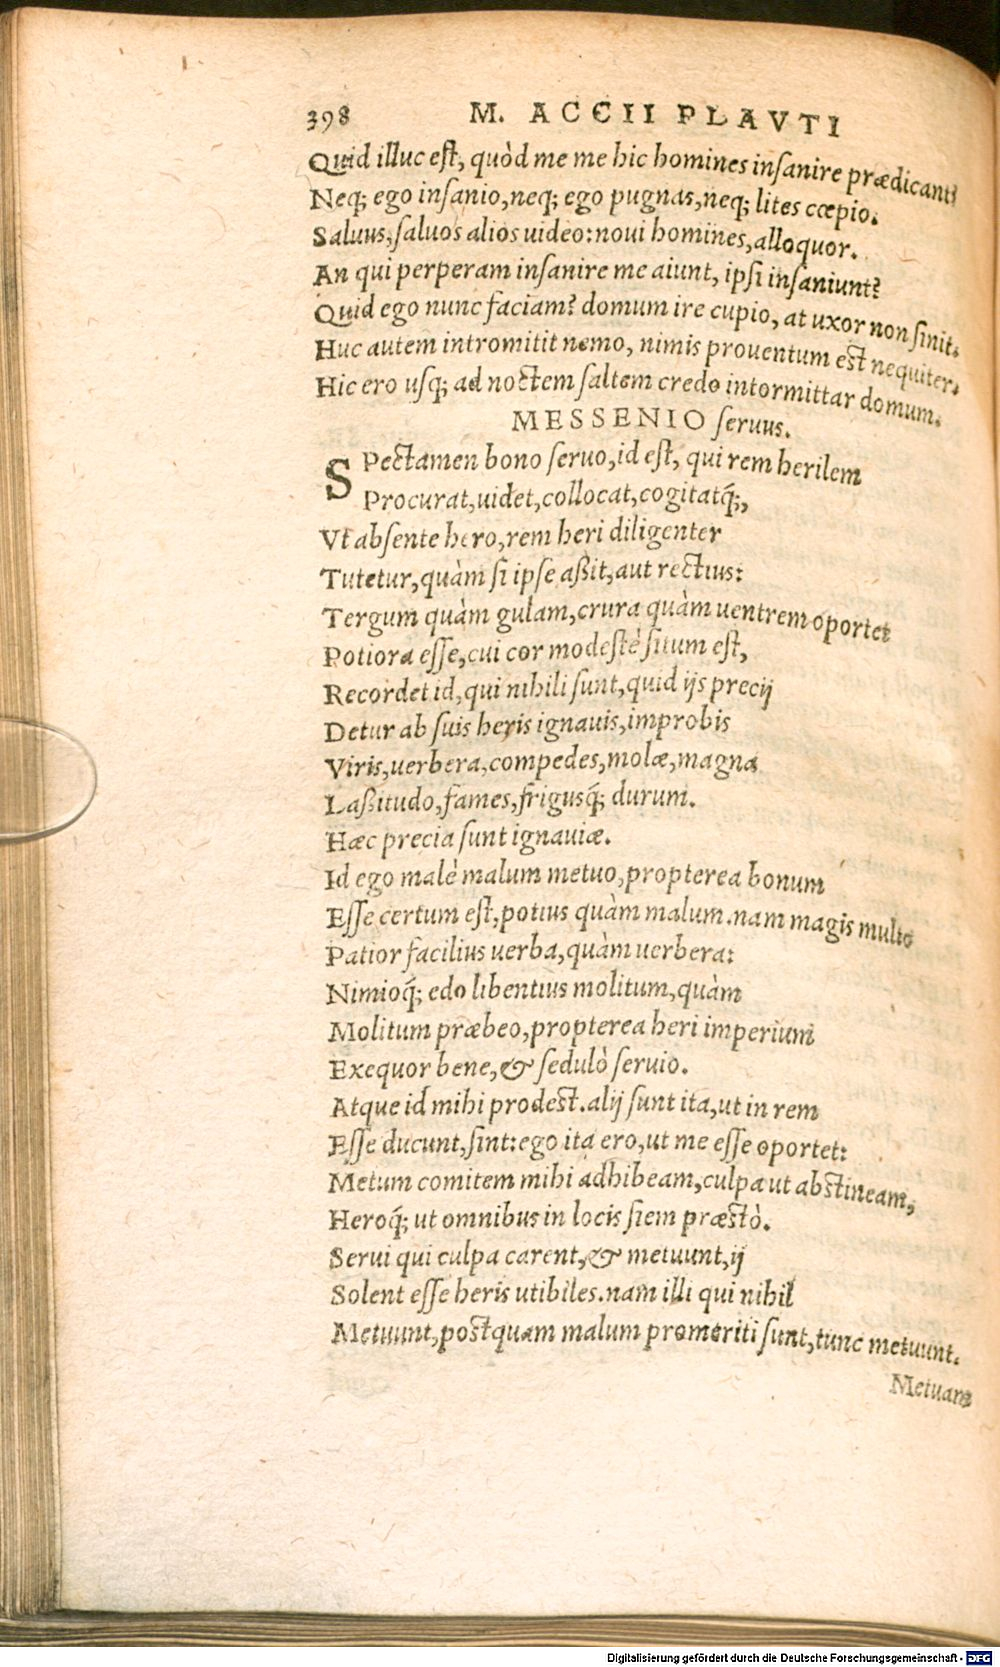 398 M. ACCII PLAVTI
Quid illuc est, quòd me me hic homines insanire prædicant?
Neq; ego insanio, neq; ego pugnas, neq; lites cœpio.
Saluus, saluos alios uideo: noui homines, alloquor.
An qui perperam insanire me aiunt, ipsi insaniunt?
Quid ego nunc faciam? domum ire cupio, at uxor non sinit.
Huc autem intromitit nemo, nimis prouentum est nequiter.
Hic ero usq; ad noctem saltem credo intormittar domum.
MESSENIO seruus.
SPectamen bono seruo, id est, qui rem herilem
Procurat, uidet, collocat, cogitatq́;,
Vt absente hero, rem heri diligenter
Tutetur, quàm si ipse aßit, aut rectius:
Tergum quàm gulam, crura quàm uentrem oportet
Potiora esse, cui cor modestè situm est,
Recordet id, qui nihili sunt, quid ijs precij
Detur ab suis heris ignauis, improbis
Viris, uerbera, compedes, molæ, magna
Laßitudo, fames, frigusq́; durum.
Hæc precia sunt ignauiæ.
Id ego malè malum metuo, propterea bonum
Esse certum est, potius quàm malum. nam magis multo
Patior facilius uerba, quàm uerbera:
Nimioq́; edo libentius molitum, quàm
Molitum præbeo, propterea heri imperium
Exequor bene, & sedulò seruio.
Atque id mihi prodest. alij sunt ita, ut in rem
Esse ducunt, sint: ego ita ero, ut me esse oportet:
Metum comitem mihi adhibeam, culpa ut abstineam,
Heroq́; ut omnibus in locis siem præstò.
Serui qui culpa carent, & metuunt, ij
Solent esse heris utibiles. nam illi qui nihil
Metuunt, postquam malum promeriti sunt, tunc metuunt.
Metuam
Digitalisierung gefördert durch die Deutsche Forschungsgemeinschaft - DFG